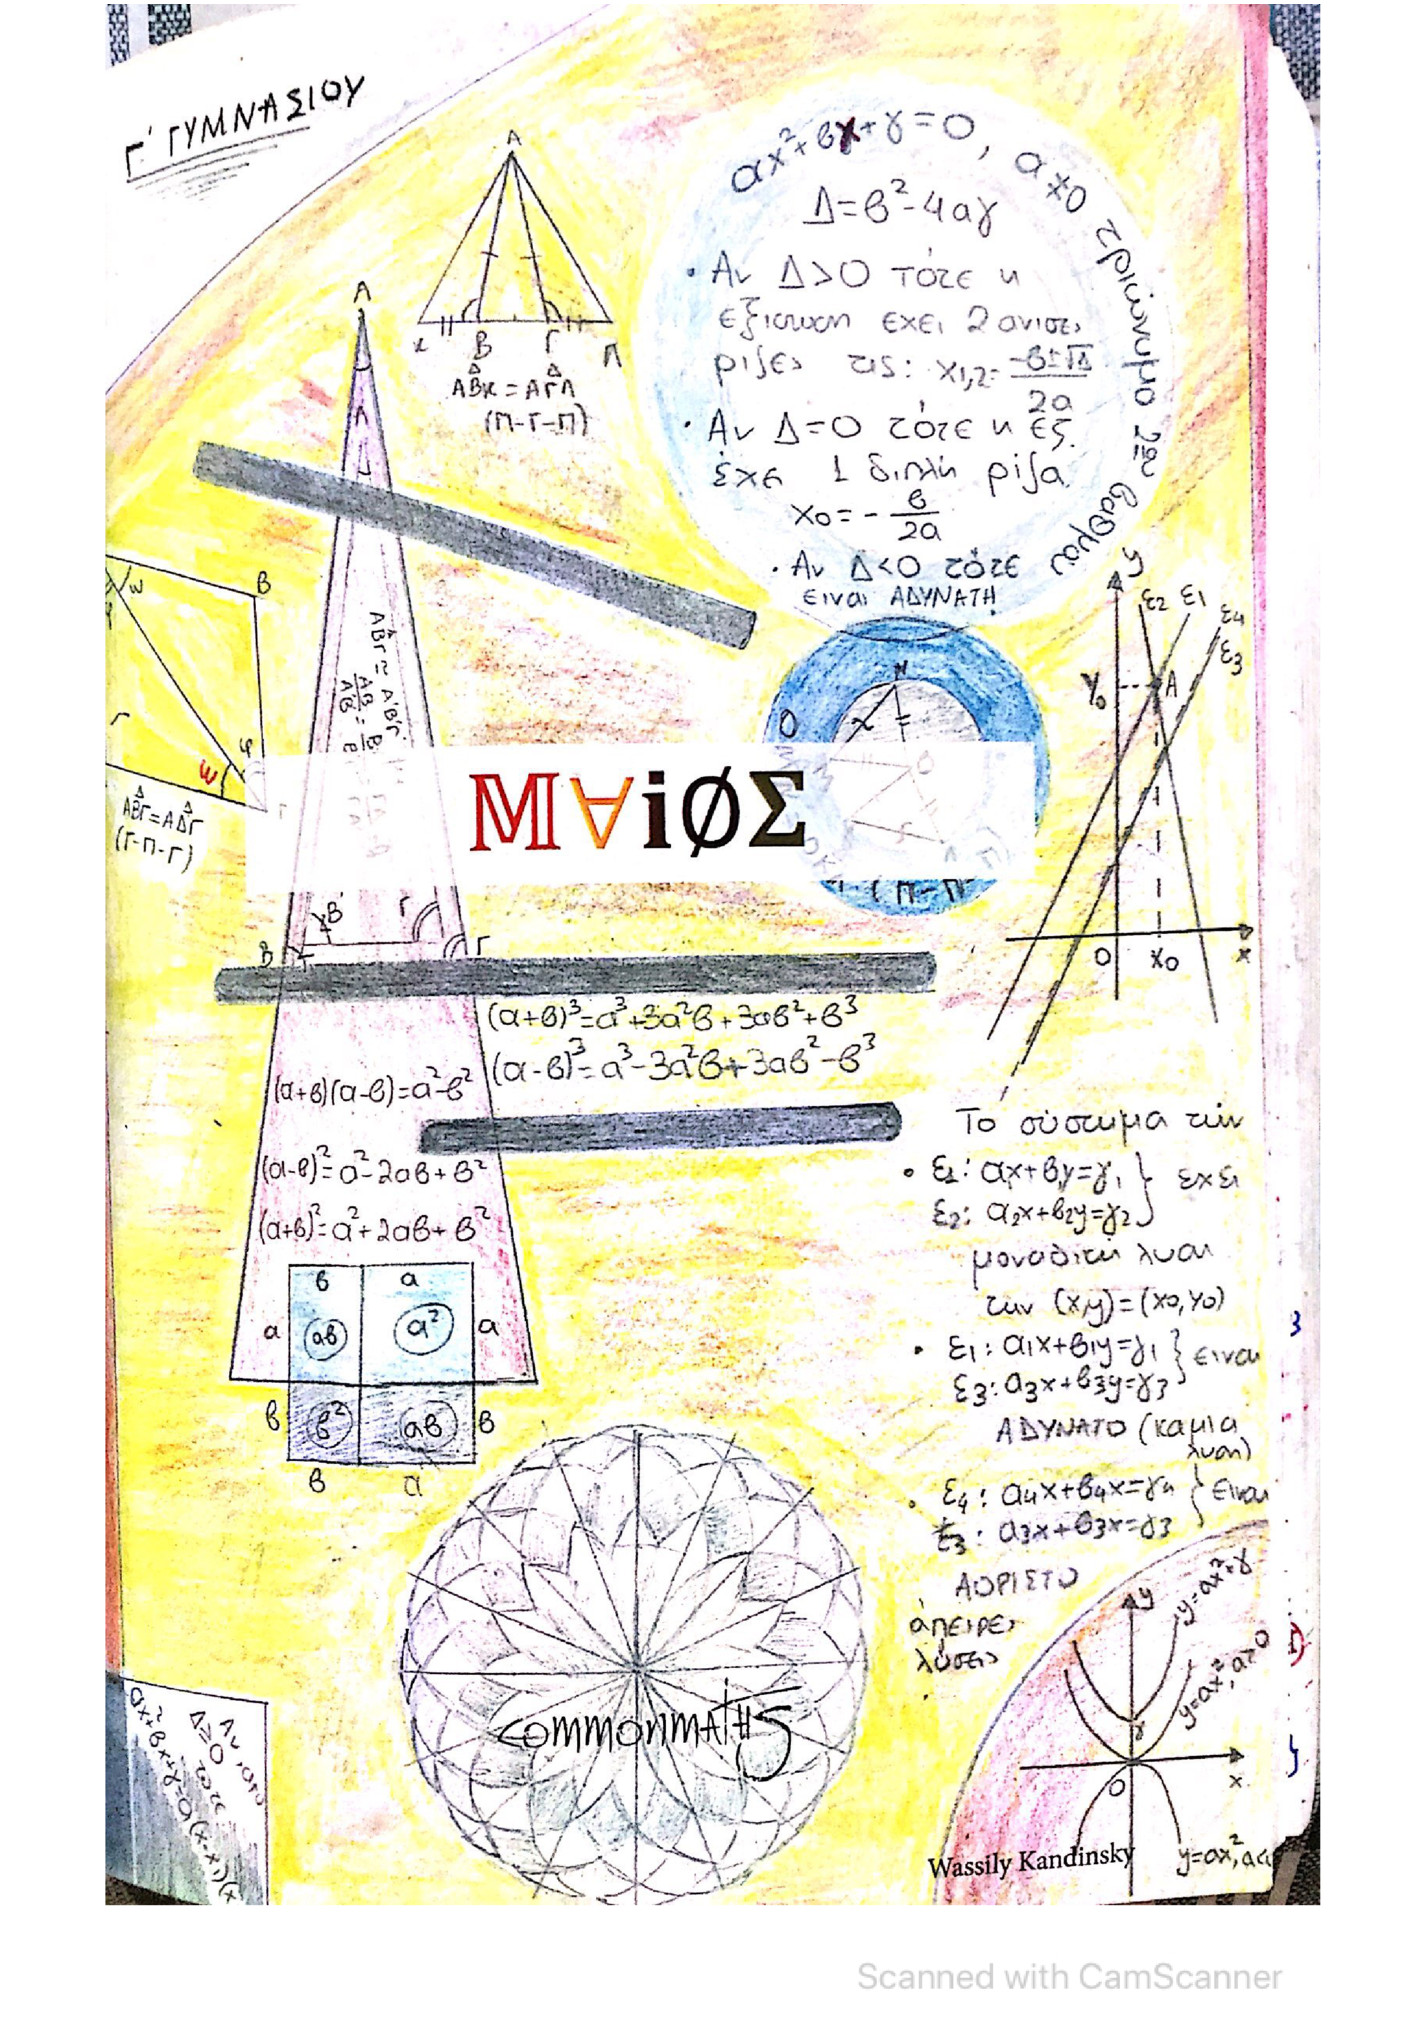 Γ' ΓΥΜΝΑΣΙΟΥ
Α
κ Β Γ Λ
ΑΒΚ = ΑΓΛ
(Π-Γ-Π)
αx²+βx+γ=0, α≠0 τριώνυμο 2ου βαθμού
Δ=β²-4αγ
• Αν Δ>0 τότε η
εξισωση εχει 2 ανισες
ριζες τις: x1,2= -β±√Δ / 2α
• Αν Δ=0 τότε η εξ.
έχει 1 διπλή ρίζα
x0 = - β/2α
• Αν Δ<0 τότε
ειναι ΑΔΥΝΑΤΗ
Α
ω Β
φ
ω
Γ
ΑΒΓ=ΑΔΓ
(Γ-Π-Γ)
ΑΒΓ≈Α'Β'Γ'
y
ε2 ε1 ε4
ε3
y0 A
O x0 x
M∀iØΣ
Β' Γ'
Β Γ
(α+β)³=α³+3α²β+3αβ²+β³
(α-β)³=α³-3α²β+3αβ²-β³
(α+β)(α-β)=α²-β²
(α-β)²=α²-2αβ+β²
(α+β)²=α²+2αβ+β²
β α
α αβ α² α
β β² αβ β
β α
Το σύστημα των
• ε1: α1x+β1y=γ1 } εχει
ε2: α2x+β2y=γ2
μοναδικη λυση
την (x,y)=(x0,y0)
• ε1: α1x+β1y=γ1 } ειναι
ε3: α3x+β3y=γ3
ΑΔΥΝΑΤΟ (καμια
λυση)
• ε4: α4x+β4x=γ4 } ειναι
ε3: α3x+β3x=γ3
ΑΟΡΙΣΤΟ
άπειρες
λύσεις
COMMONMATHS
y
y=αx²+γ
y=αx², α>0
γ
O x
y=αx², α<
Αν
Δ≥0 τότε
αx²+βx+γ=α(x-x1)(x
Wassily Kandinsky
Scanned with CamScanner